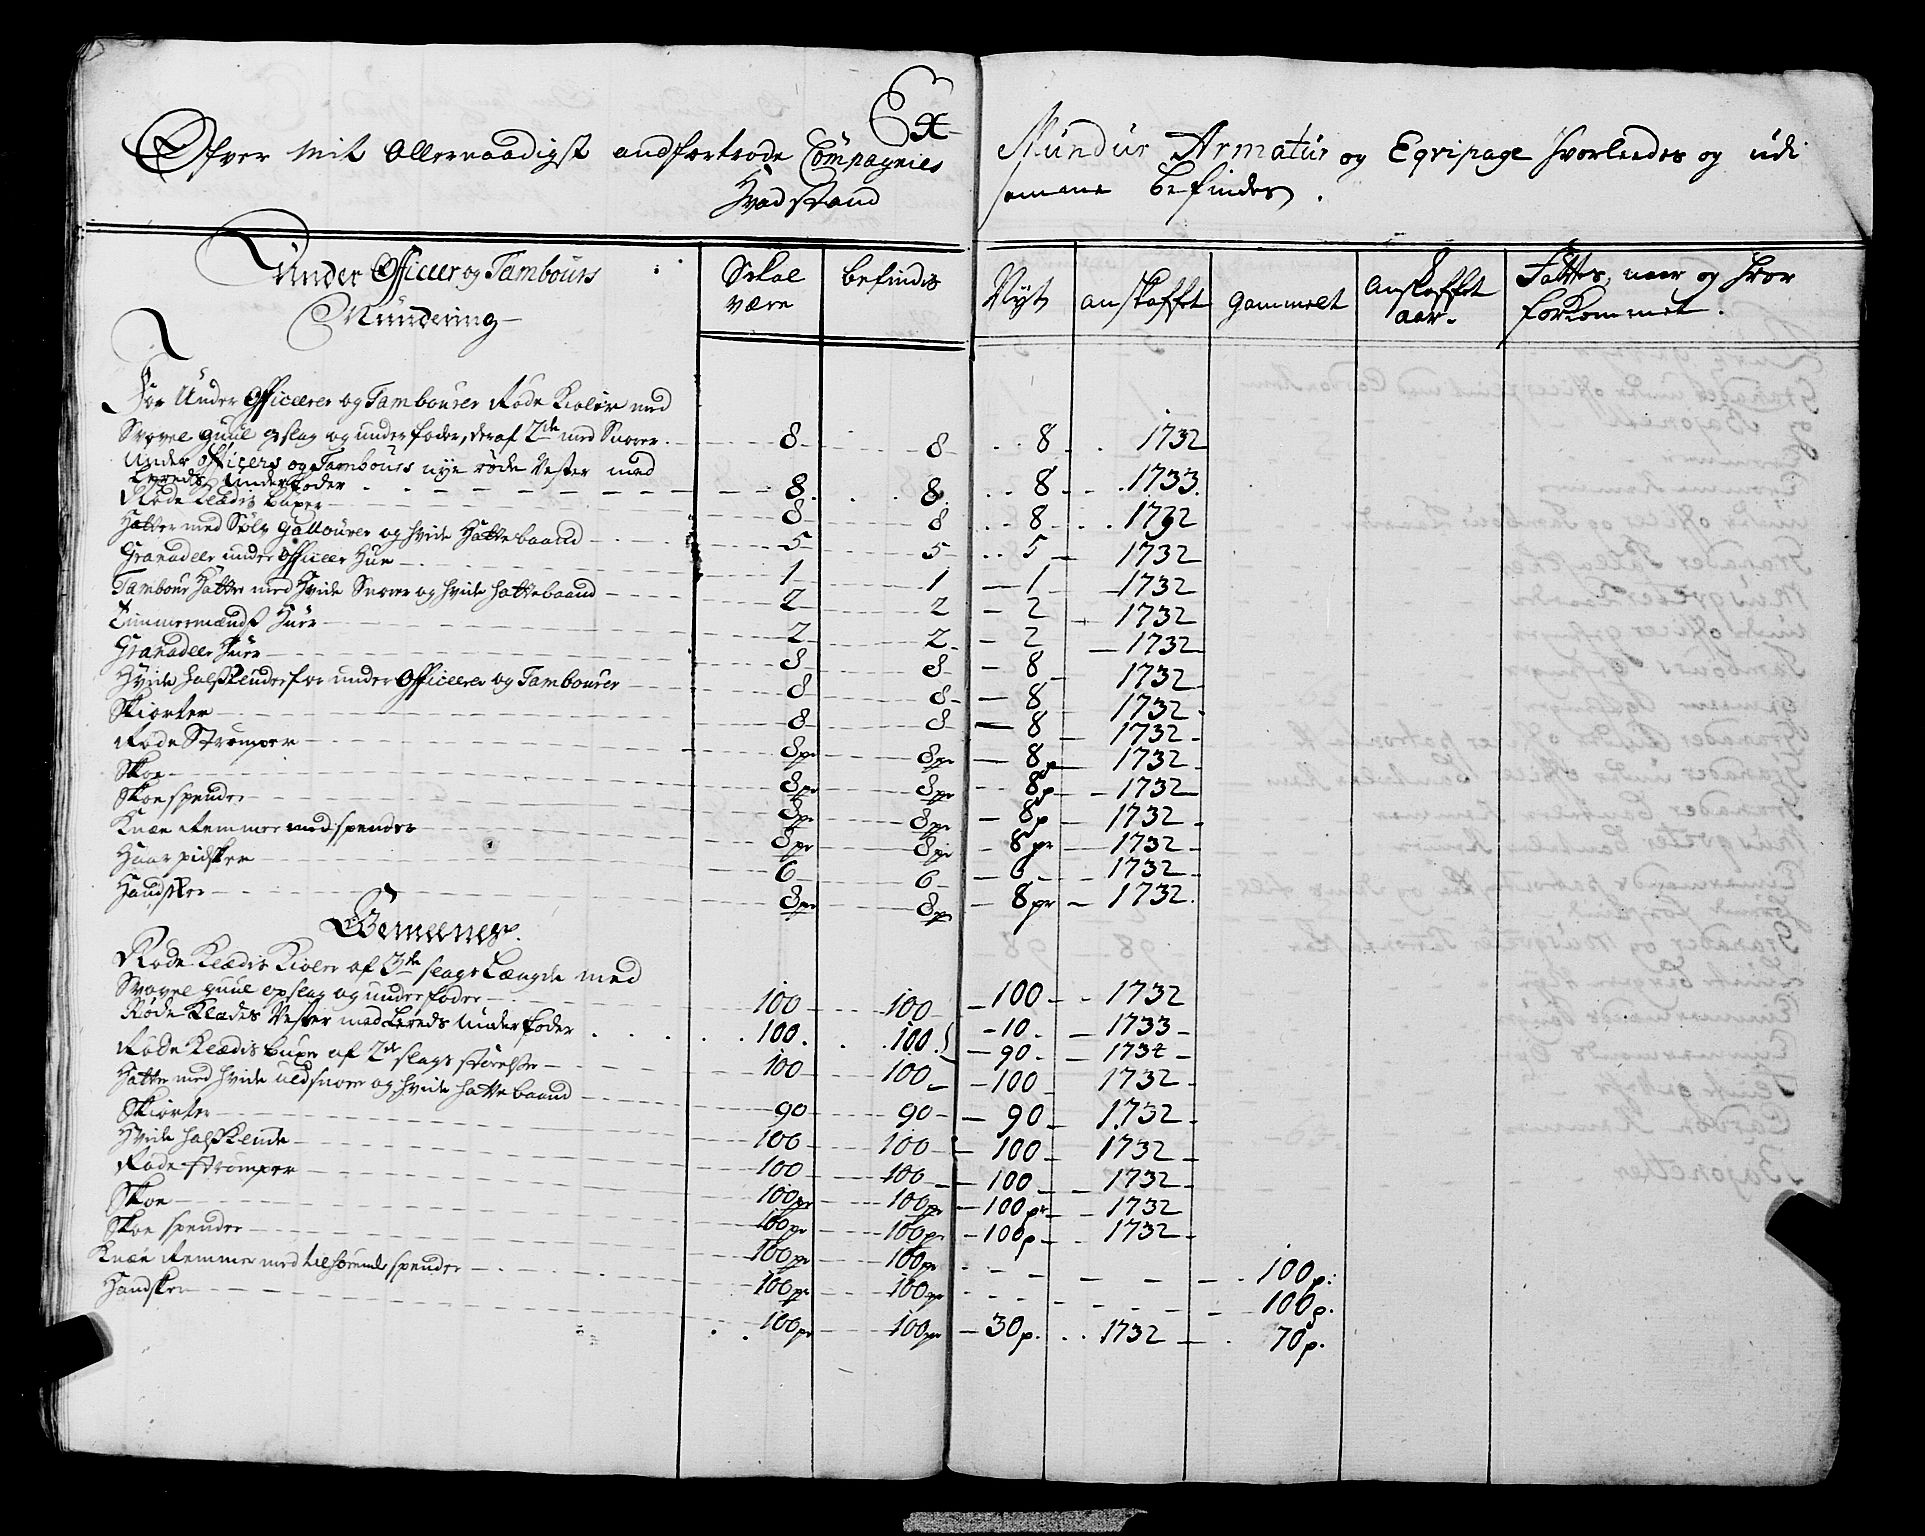 Ex
Ofver Mit Allernaadigst andfortrode Compagnies Mundur Armatur og Eqvipage hvorleedes og udi
Hvad stand samme befindes.
Under Officeer og Tambours Mundering
Skal være
befindes
Nyt
anskaffet
gammelt
anskaffet aar.
Fattes, naar og hvor forkommet.
For Under Officeerer og Tambourer Røde Kioler med
Svovel guul opslag og underfoder, deraf 2de med Snorer. 8 8 8 1732
Under officers og Tambours nye røde Vester med
Lereds Underfoder 8. 8. 8 1733.
Røde Klædis buxer 8 8 8 1732
Hatter med Sølv gallouner og hvide Hattebaand 5 5 5 1732
Granadeer under officeer Hue 1 1 1 1732
Tambour Hatter med hvide Snorer og hvide hattebaand 2 2 2 1732
Timmermænds Huer 2 2 2 1732
Granadeer Huer 8 8 8 1732
Hvide halsklude for under Officeerer og Tambourer 8 8 8 1732
Skiorter 8 8 8 1732
Røde Strømper 8pr 8pr 8p 1732
Skoe 8pr 8pr 8p 1732
Skoespender 8pr 8pr 8p 1732
Knæe Remmer med spender 8pr 8pr 8pr 1732
Haar pidsker 6 6 6 1732
Handsker 8pr 8pr 8pr 1732.
Gemeenes.
Røde Klædis Kioler af 3de slags Længde med
Svovel guul opslag og underfoder 100 100 100 1732
Røde Klædes Vester med Lereds Underfoder 100. 100. 10 1733
90 1734
Røde Klædis buxer af 2de slags størelse 100 100 100 1732
Hatter med hvide uldsnorer og hvide hattebaand 90 90 90 1732
Skiorter 100 100 100 1732
Hvide halsklude 100 100 100 1732
Røde strømper 100pr 100pr 100pr 1732
Skoe 100pr 100pr 100p 1732
Skoe spender 100pr 100pr 100p.
Knæe Remmer med tilhørende spender 100pr 100pr 100p.
Handsker 100pr 100pr 30p. 1732 70p.